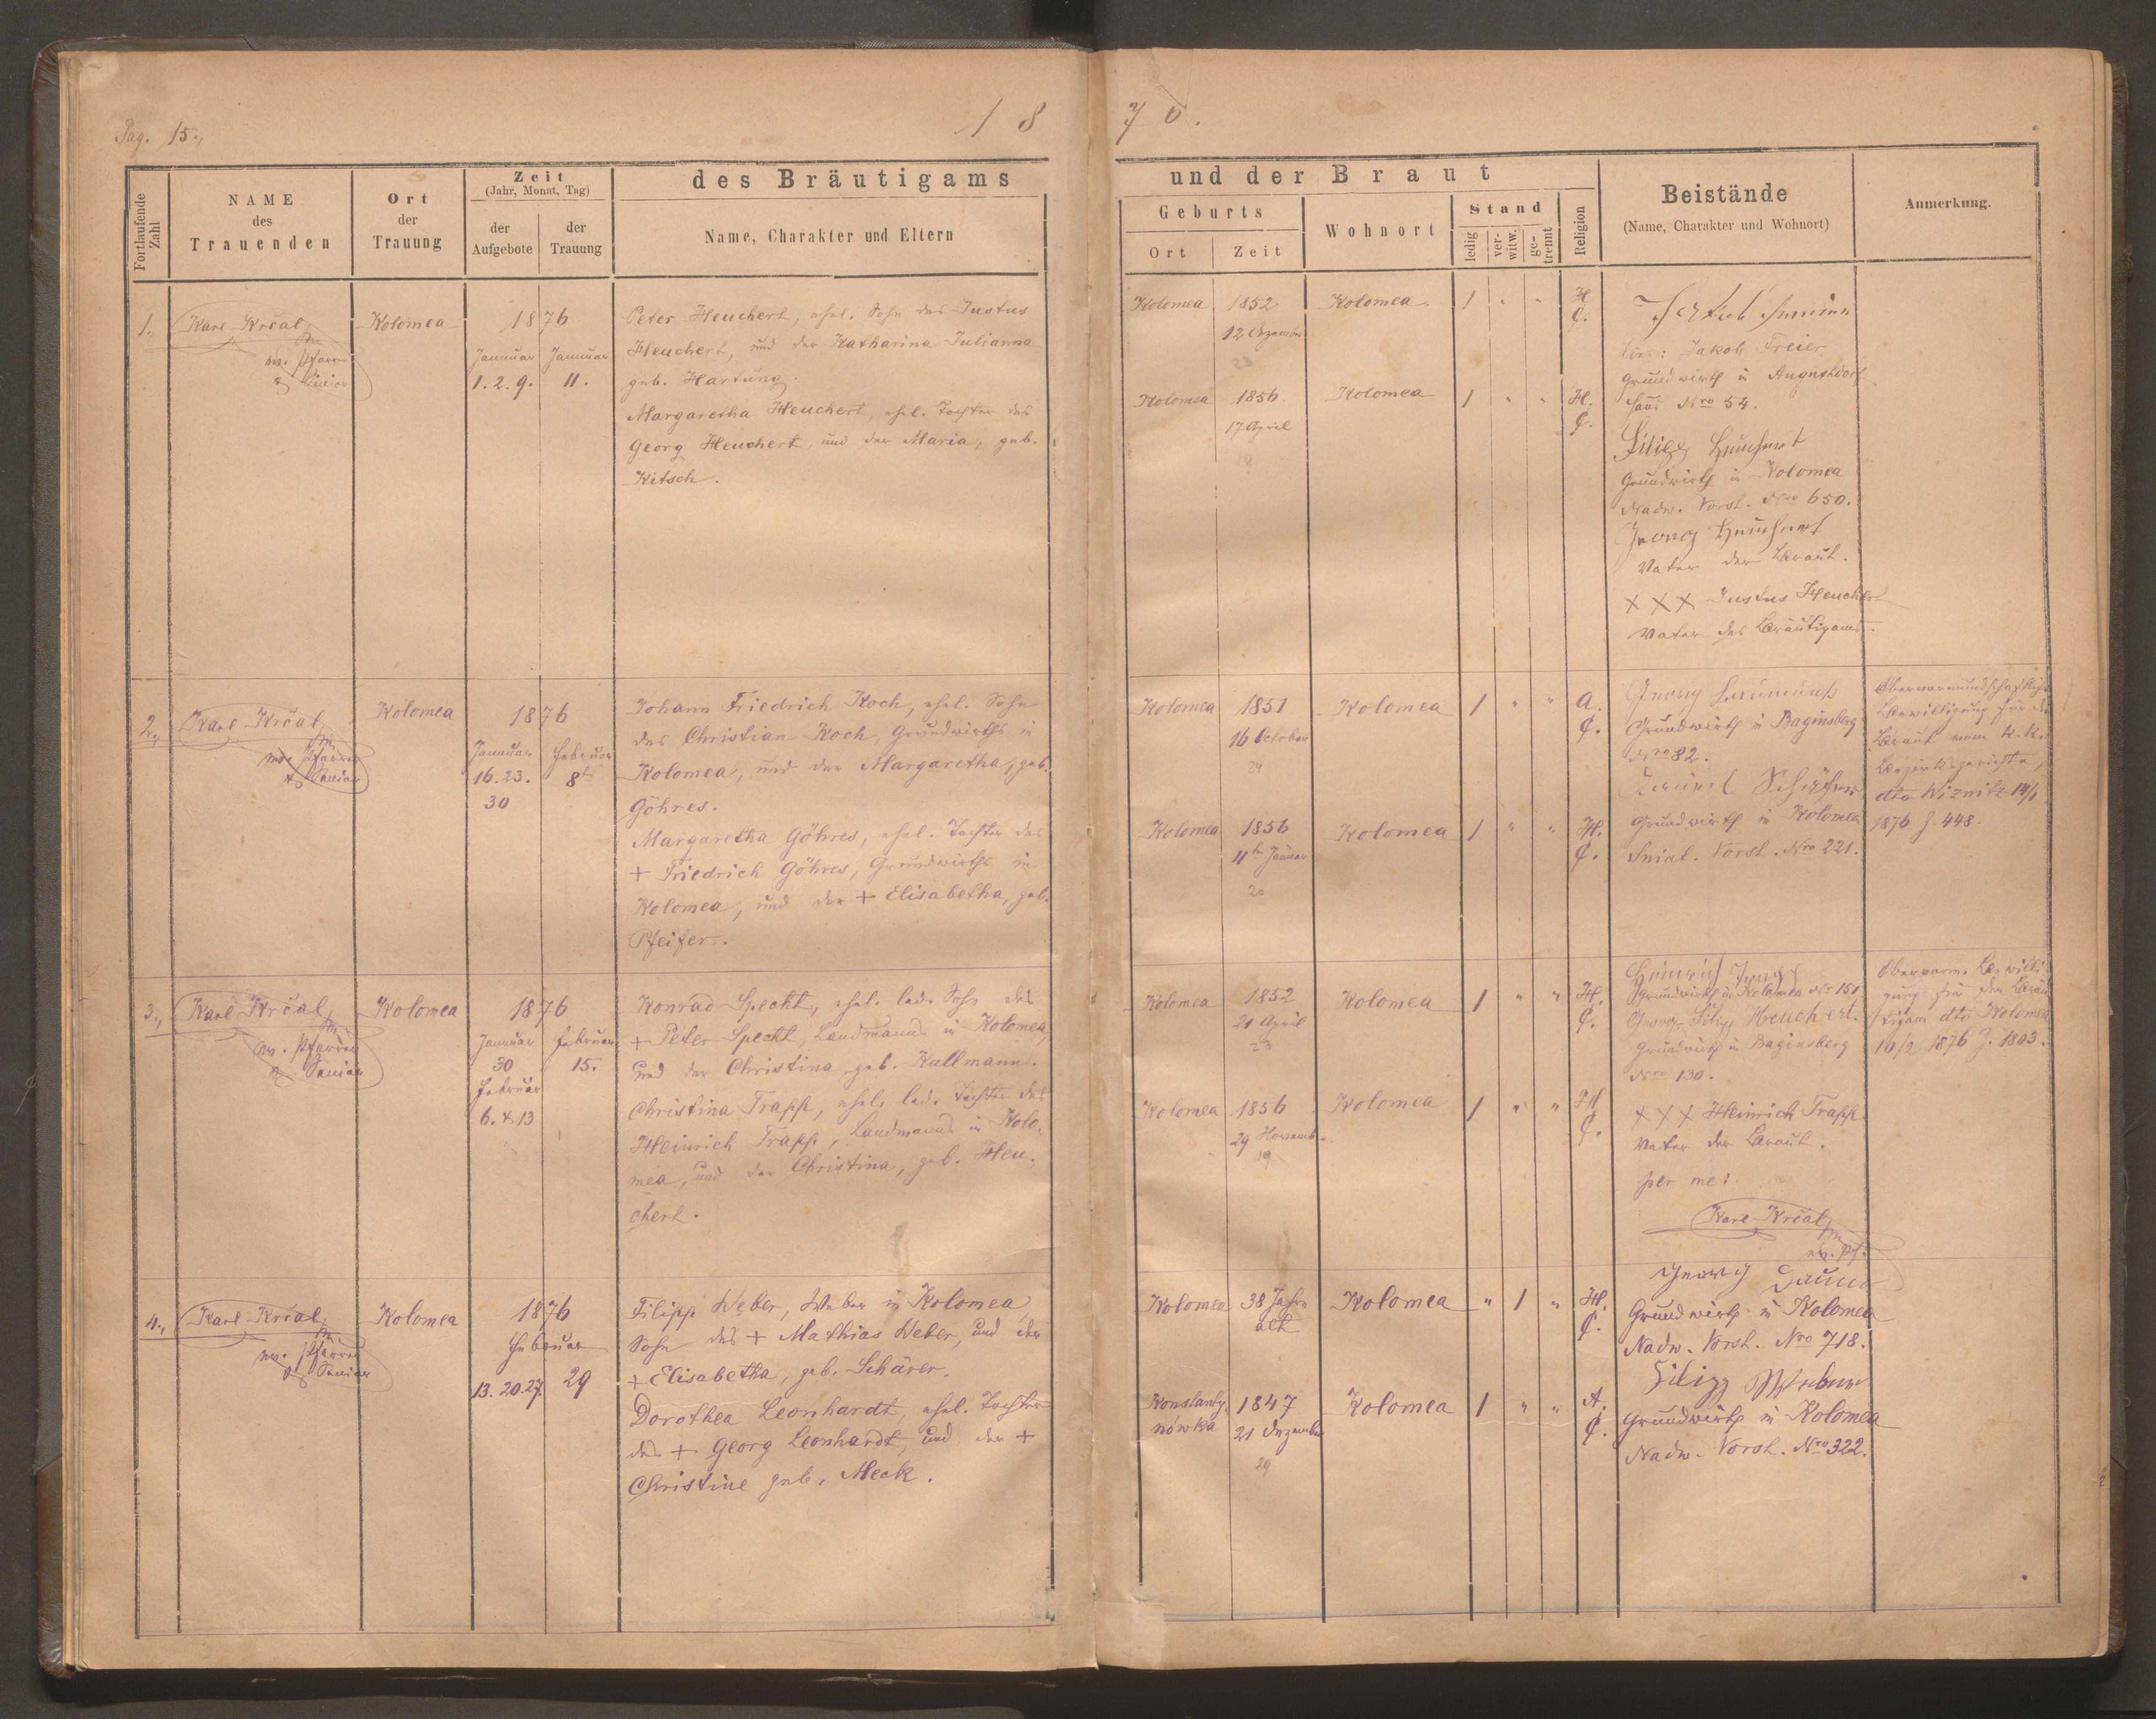 Pag. 15.,
18 70.
Fortlaufende Zahl
NAME des Trauenden
Ort der Trauung
Zeit (Jahr, Monat, Tag)
der Aufgebote
der Trauung
des Bräutigams
Name, Charakter und Eltern
und der Braut
Geburts
Ort
Zeit
Wohnort
Stand
ledig
verwitw.
getrennt
Religion
Beistände
(Name, Charakter und Wohnort)
Anmerkung.
1.,
Karl Krčal,
ev. Pfarrer
& Senior
Kolomea
1876
Januar
1. 2. 9.
Januar
11.
Peter Heuchert, ehel. Sohn des Justus
Heuchert, und der Katharina Julianna
geb. Hartung.
Margaretha Heuchert, ehel. Tochter des
Georg Heuchert, und der Maria, geb.
Kitsch.
Kolomea
1852
12 Dezember
23
Kolomea
1 " "
H.
C.
Kolomea
1856
17 April
19
Kolomea
1 " "
H.
C.
Jakob Freier
Grundwirth in Augustdorf
Haus Nro 54.
Filipp Heuchert
Grundwirth in Kolomea
Nadw. Vorst. Nro 650.
Georg Heuchert
Vater der Braut.
XXX Justus Heuchert
Vater des Bräutigams.
2.,
Karl Krčal,
ev. Pfarrer
& Senior
Kolomea
1876
Januar
16. 23.
30
Februar
8t
Johann Friedrich Koch, ehel. Sohn
des Christian Koch, Grundwirths in
Kolomea, und der Margaretha, geb.
Göhres.
Margaretha Göhres, ehel. Tochter des
+ Friedrich Göhres, Grundwirths in
Kolomea, und der + Elisabetha, geb.
Pfeifer.
Kolomea
1851
16 October
24
Kolomea
1 " "
A.
C.
Kolomea
1856
11te Januar
20
Kolomea
1 " "
H.
C.
Georg
Grundwirth in Baginsberg
Nro 82.
Grundwirth in Kolomea
Sniat. Vorst. Nro 221.
Obervormundschaftliche
Bewilligung für die
Braut vom k. k.
Bezirksgerichte,
dto Wiznitz 14/1
1876 Z. 448.
3.,
Karl Krčal,
ev. Pfarrer
& Senior
Kolomea
1876
Januar
30
Februar
6. & 13
Februar
15.
Konrad Specht, ehel. led. Sohn des
+ Peter Specht, Landmanns in Kolomea,
und der Christina, geb. Kullmann.
Christina Trapp, ehel. led. Tochter des
Heinrich Trapp, Landmanns in Kolo-
mea, und der Christina, geb. Heu-
chert.
Kolomea
1852
21 April
23
Kolomea
1 " "
H.
C.
Kolomea
1856
29 Novemb.
19
Kolomea
1 " "
H
C.
Heinrich
Grundwirth in Kolomea Nro 151
Georg Filipp Heuchert.
Grundwirth in Baginsberg
Nro 130.
XXX Heinrich Trapp
Vater der Braut.
per me:
Karl Krčal,
ev. Pf.
Obervorm. Bewilli-
gung für den Bräu-
tigam dto Kolomea
16/2 1876 Z. 1803.
4.,
Karl Krčal,
ev. Pfarrer
& Senior
Kolomea
1876
Februar
13. 20. 27.
29
Filipp Weber, Weber in Kolomea,
Sohn des + Mathias Weber, und der
+ Elisabetha, geb. Schärer.
Dorothea Leonhardt, ehel. Tochter
des + Georg Leonhardt, und der +
Christine geb. Meck.
Kolomea
38 Jahre
alt
Kolomea
" 1 "
H.
C.
Konstanty-
nówka
1847
21 Dezember
29
Kolomea
1 " "
A.
C.
Georg
Grundwirth in Kolomea
Nadw. Vorst. Nro 718.
Filipp Weber
Grundwirth in Kolomea
Nadw. Vorst. Nro 322.